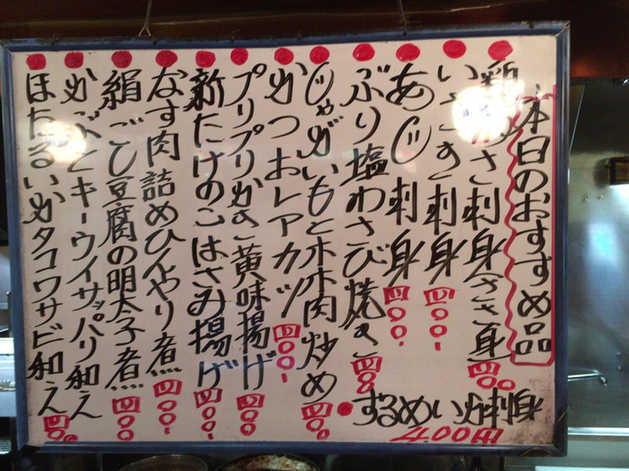 本日のおすすめ品
刺身(ささ身) 四〇〇
いさき刺身 四〇〇
あじ刺身 四〇〇
ぶり塩わさび焼き 四〇〇
じゃがいもと木肉炒め
かつおレアカツ 四〇〇
プリプリかき黄味揚げ 四〇〇
新たけのこはさみ揚げ 四〇〇
なす肉詰めひんやり煮 四〇〇
絹ごし豆腐の明太子煮 四〇〇
かぶとキーウイサッパリ和え
ほたるいかタコワサビ和え 四〇〇
するめいか刺身
400円